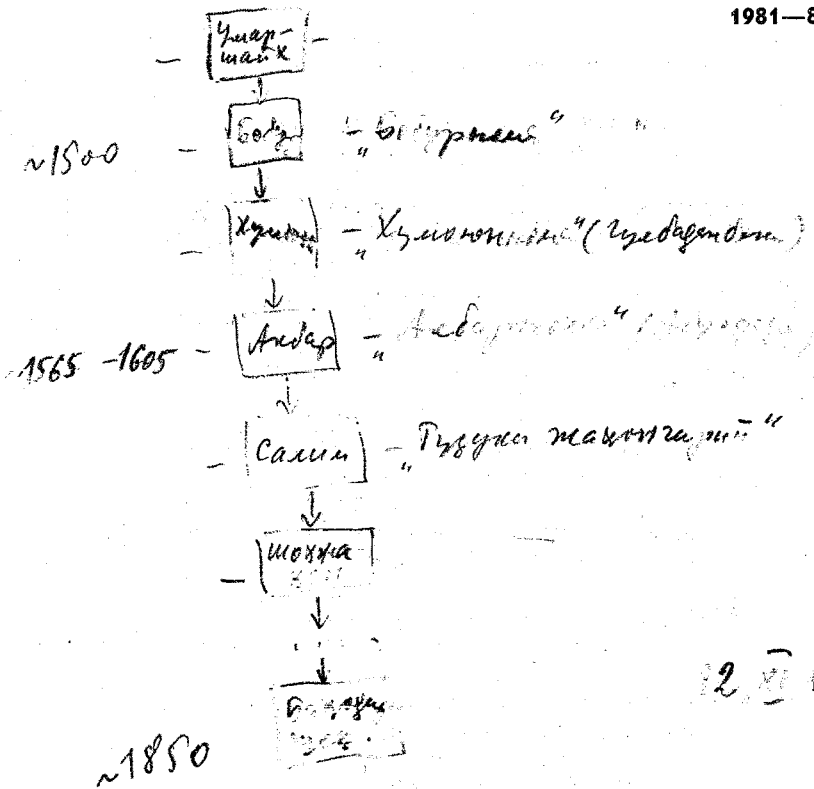 1981—8
Умар-
шайх
~1500 - Бобу - „Бобурнома"
- Хумоюн - „Хумоюннома" (Гулбаданбегим)
1565 - 1605 - Акбар - „Акбарнома"
- Салим - „Тузуки жаҳонгарий"
- Шоҳжа
ҳон
2 XI
~1850